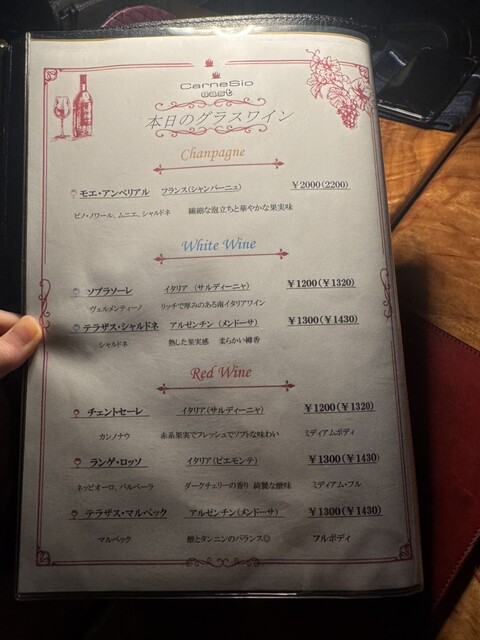 CarneSio
east
本日のグラスワイン
Chanpagne
モエ・アンペリアル フランス(シャンパーニュ) ￥2000(2200)
ピノ・ノワール、ムニエ、シャルドネ 繊細な泡立ちと華やかな果実味
White Wine
ソプラソーレ イタリア (サルディーニャ) ￥1200(￥1320)
ヴェルメンティーノ リッチで厚みのある南イタリアワイン
テラザス・シャルドネ アルゼンチン (メンドーサ) ￥1300(￥1430)
シャルドネ 熟した果実感 柔らかい樽香
Red Wine
チェントセーレ イタリア(サルディーニャ) ￥1200(￥1320)
カンノナウ 赤系果実でフレッシュでソフトな味わい ミディアムボディ
ランゲ・ロッソ イタリア(ピエモンテ) ￥1300(￥1430)
ネッビオーロ、バルベーラ ダークチェリーの香り 綺麗な酸味 ミディアム・フル
テラザス・マルベック アルゼンチン(メンドーサ) ￥1300(￥1430)
マルベック 酸とタンニンのバランス◎ フルボディ